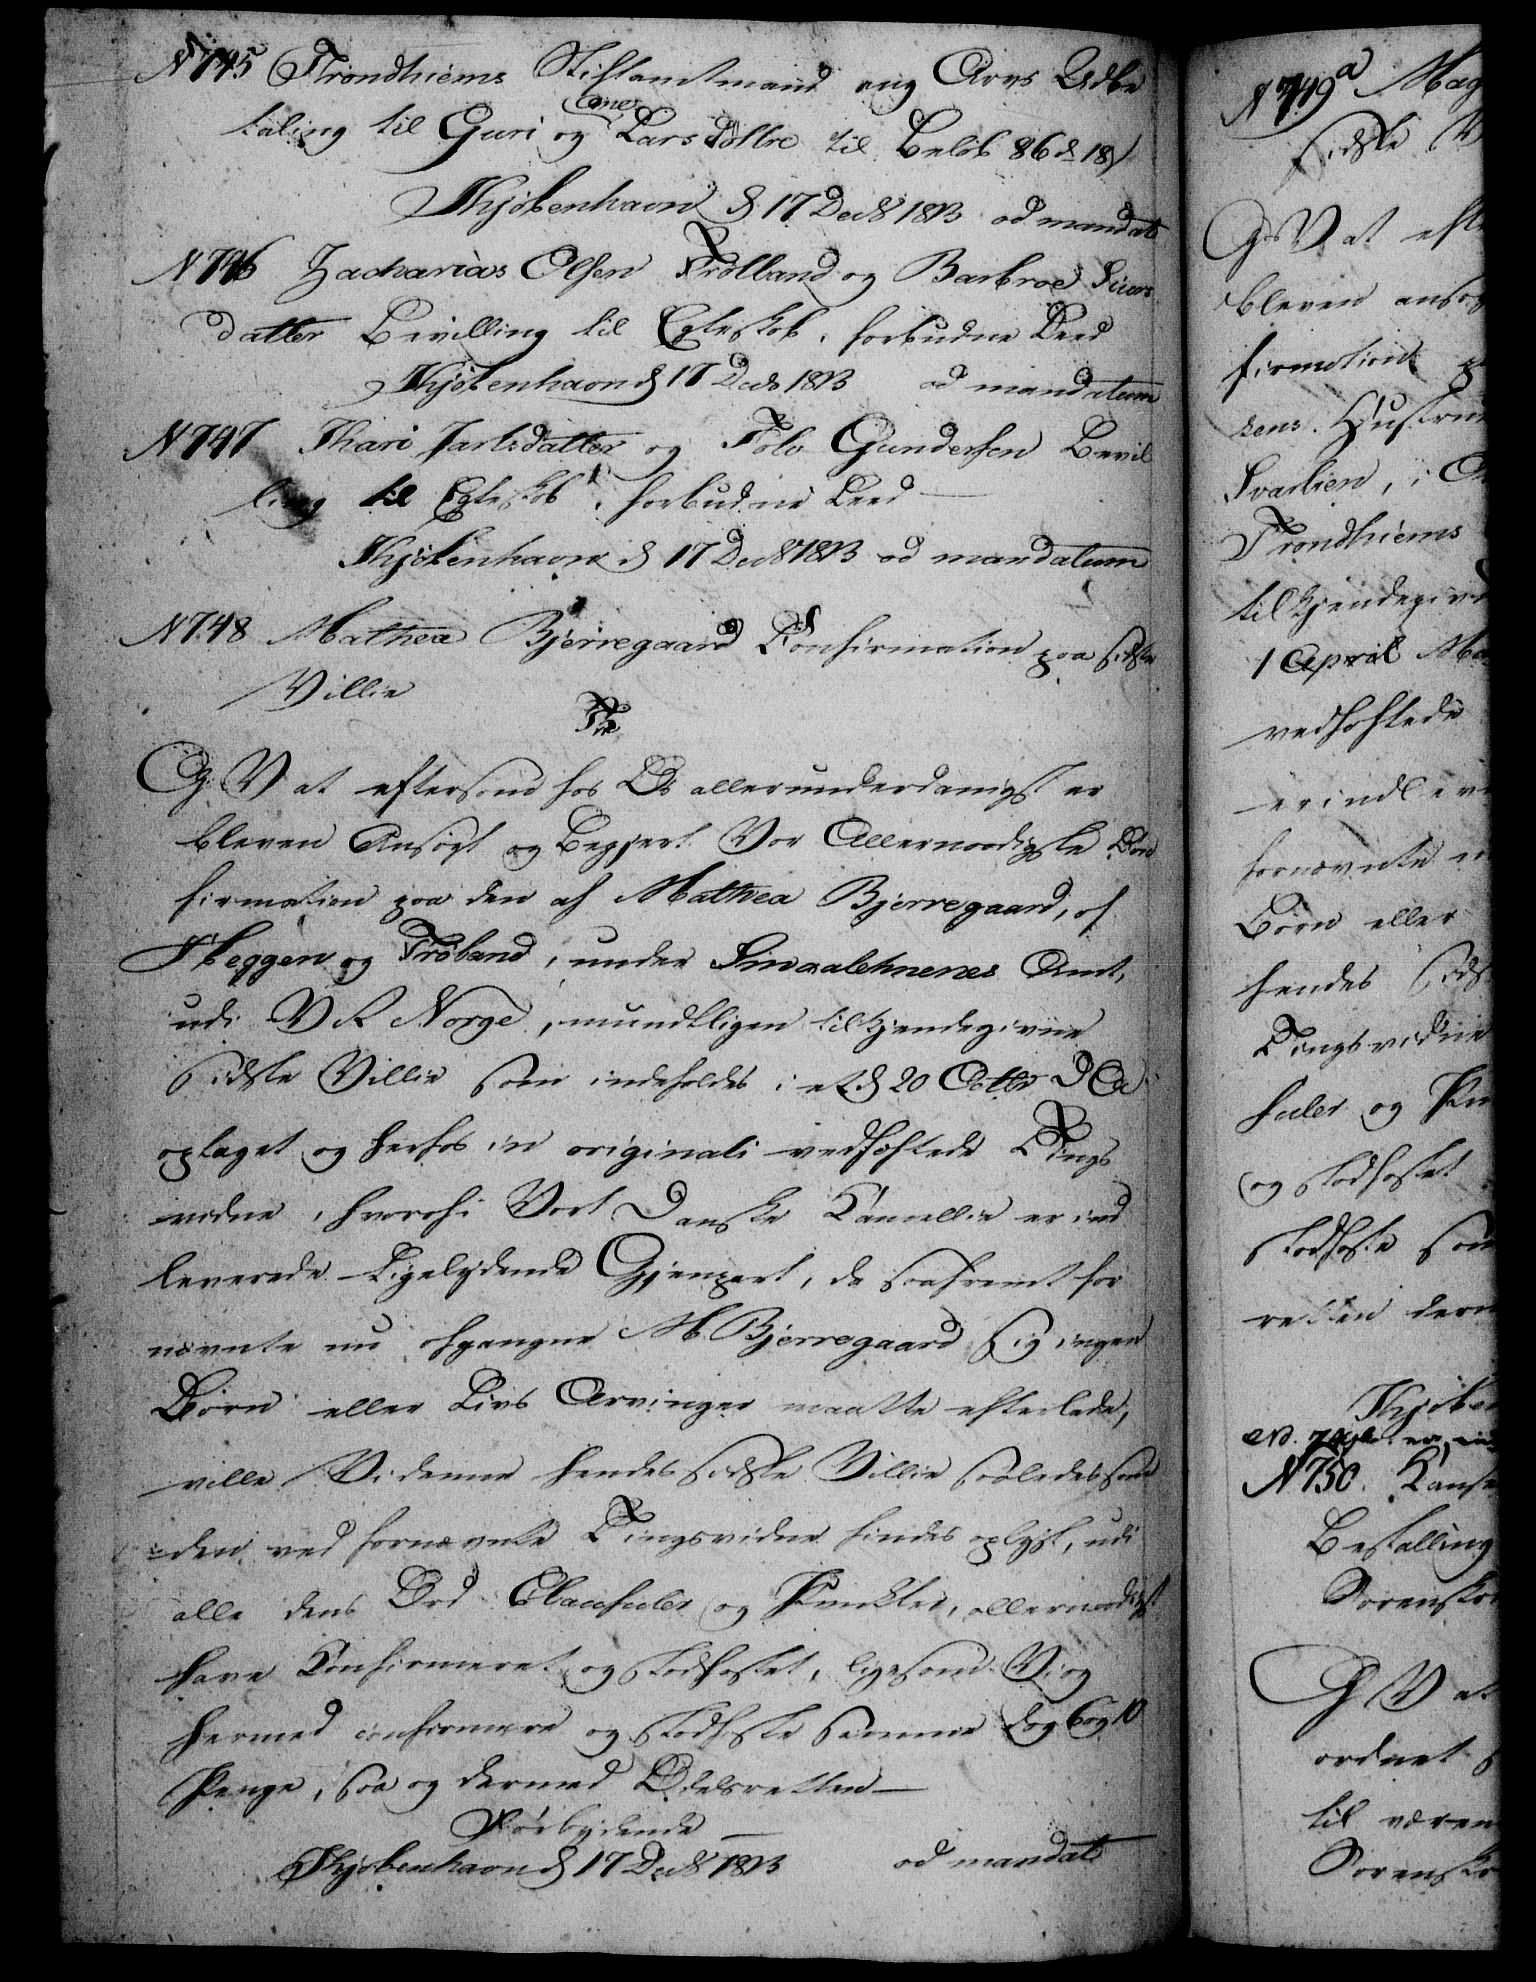 N 745 Trondhiems Stiftamtmand ang Arvs Udbe
taling til Guri og Ane Lars døttre til Beløb 86 d 18
Kjøbenhavn d 17 Decb 1813 ad mandat
N 746 Zacharias Olsen Trolland og Barbroe Siurs
datter Bevilling til Egteskab i forbudne Leed
Kjøbenhavn d 17 Decb 1813 ad mandatum
N 747 Kari Jarlsdatter og Tolv Gundersen Bevil
ling til Egteskab i forbudne Leed
Kjøbenhavn d 17 Decb 1813 ad mandatum
N 748 Mathea Bjerregaards Confirmation paa sidste
Villie
GV at eftersom hos Os allerunderdanigst er
bleven Ansøgt og Begjert Vor Allernaadigste Con
firmation paa den af Mathea Bjerregaard, af
Heggen og Frøland, under Smaalehnenes Amt,
udi V R Norge, mundtligen tilkjendegivne
sidste Villie som indeholdes i et d 20 Octbr D A
optaget og herhos in originali vedhæftede Tings
vidne, hvorefter Vort Danske Cancellie er ind
leverede Ligelydende Gjenpart, da saafremt for
nævnte nu afgangne M Bjerregaard sig ingen
Børn eller Livs Arvinger maatte efterlade,
ville Vi denne hendes sidste Villie saaledes som
den ved fornævnte Tingsvidne findes oplyst, udi
alle dens Ord Clausuler og Puncter, allernaadigst
have Confirmeret og stadfæstet, ligesom Vi og
hermed confirmere og stadfæste samme dog 6 og 10
Penge, saa og dermed Odelsretten
Forbydende
Kjøbenhavn d 17 Decb 1813 ad mandat
N 749 a Mag
sidste V
GV at efte
bleven ansøg
firmation p
sens Hustrue
Svarlien, i O
Trondhiems
tilkjendegivn
1 April Ma
vedhæftede
er indleve
fornævnte
Børn eller
hendes sids
Tingsvidne
suler og Pun
og stadfæstet
stadfæste sam
retten derm
Kjøben
N 750. Canse
Bestalling
Sorenskri
GV at
ordnet
til væren
Sorenskr